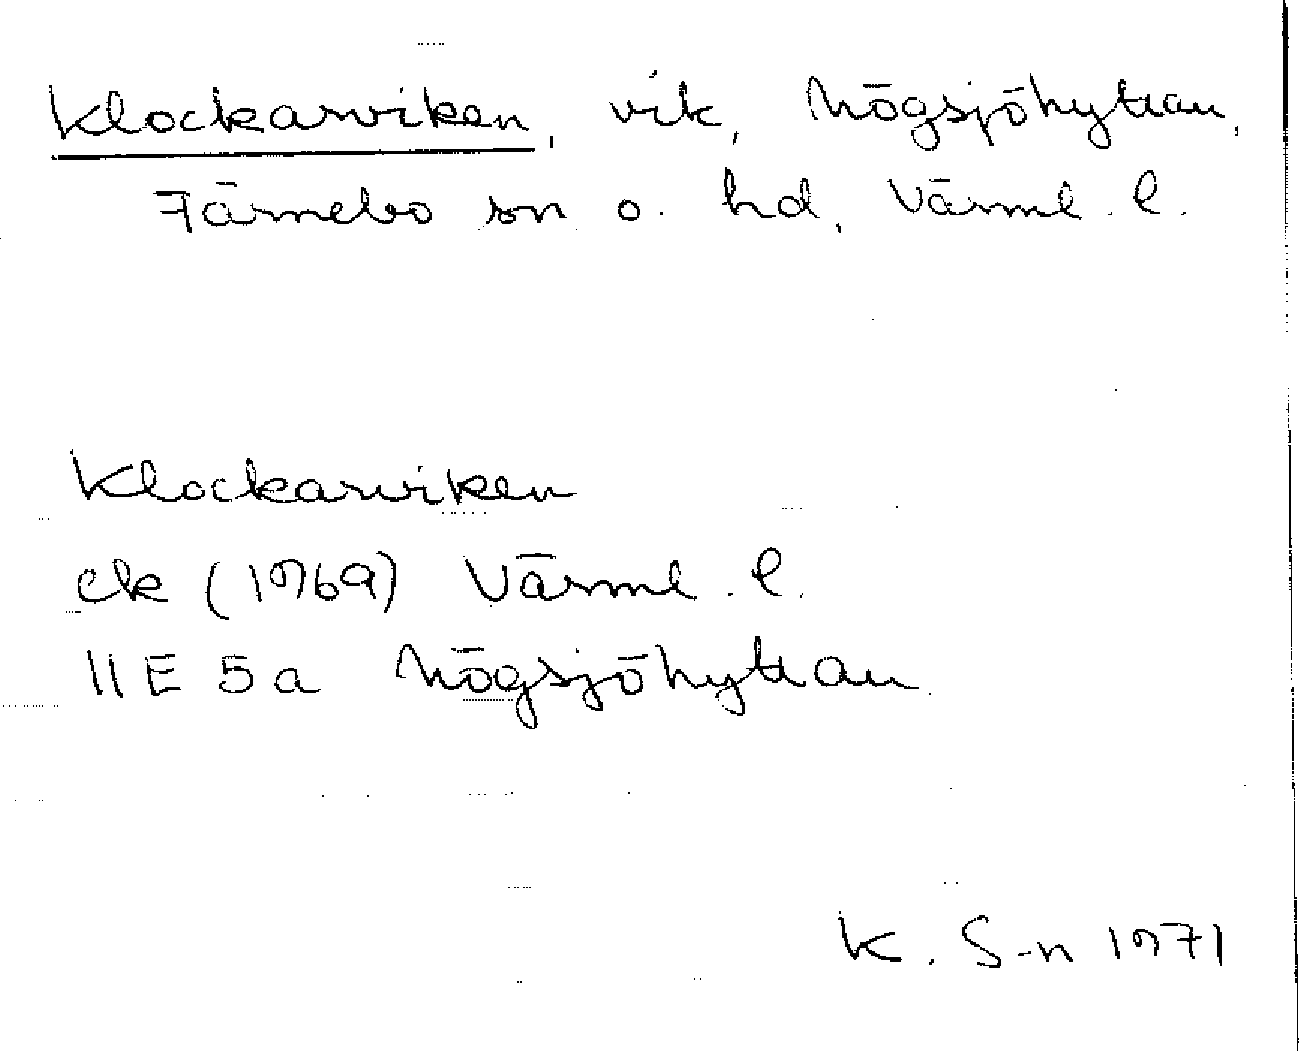 Klockarviken, vik, Högsjöhyttan,
Färnebo sn o. hd, Värml. l.
Klockarviken
ek (1969) Värml. l.
11E 5a Högsjöhyttan
K. S-n 1971